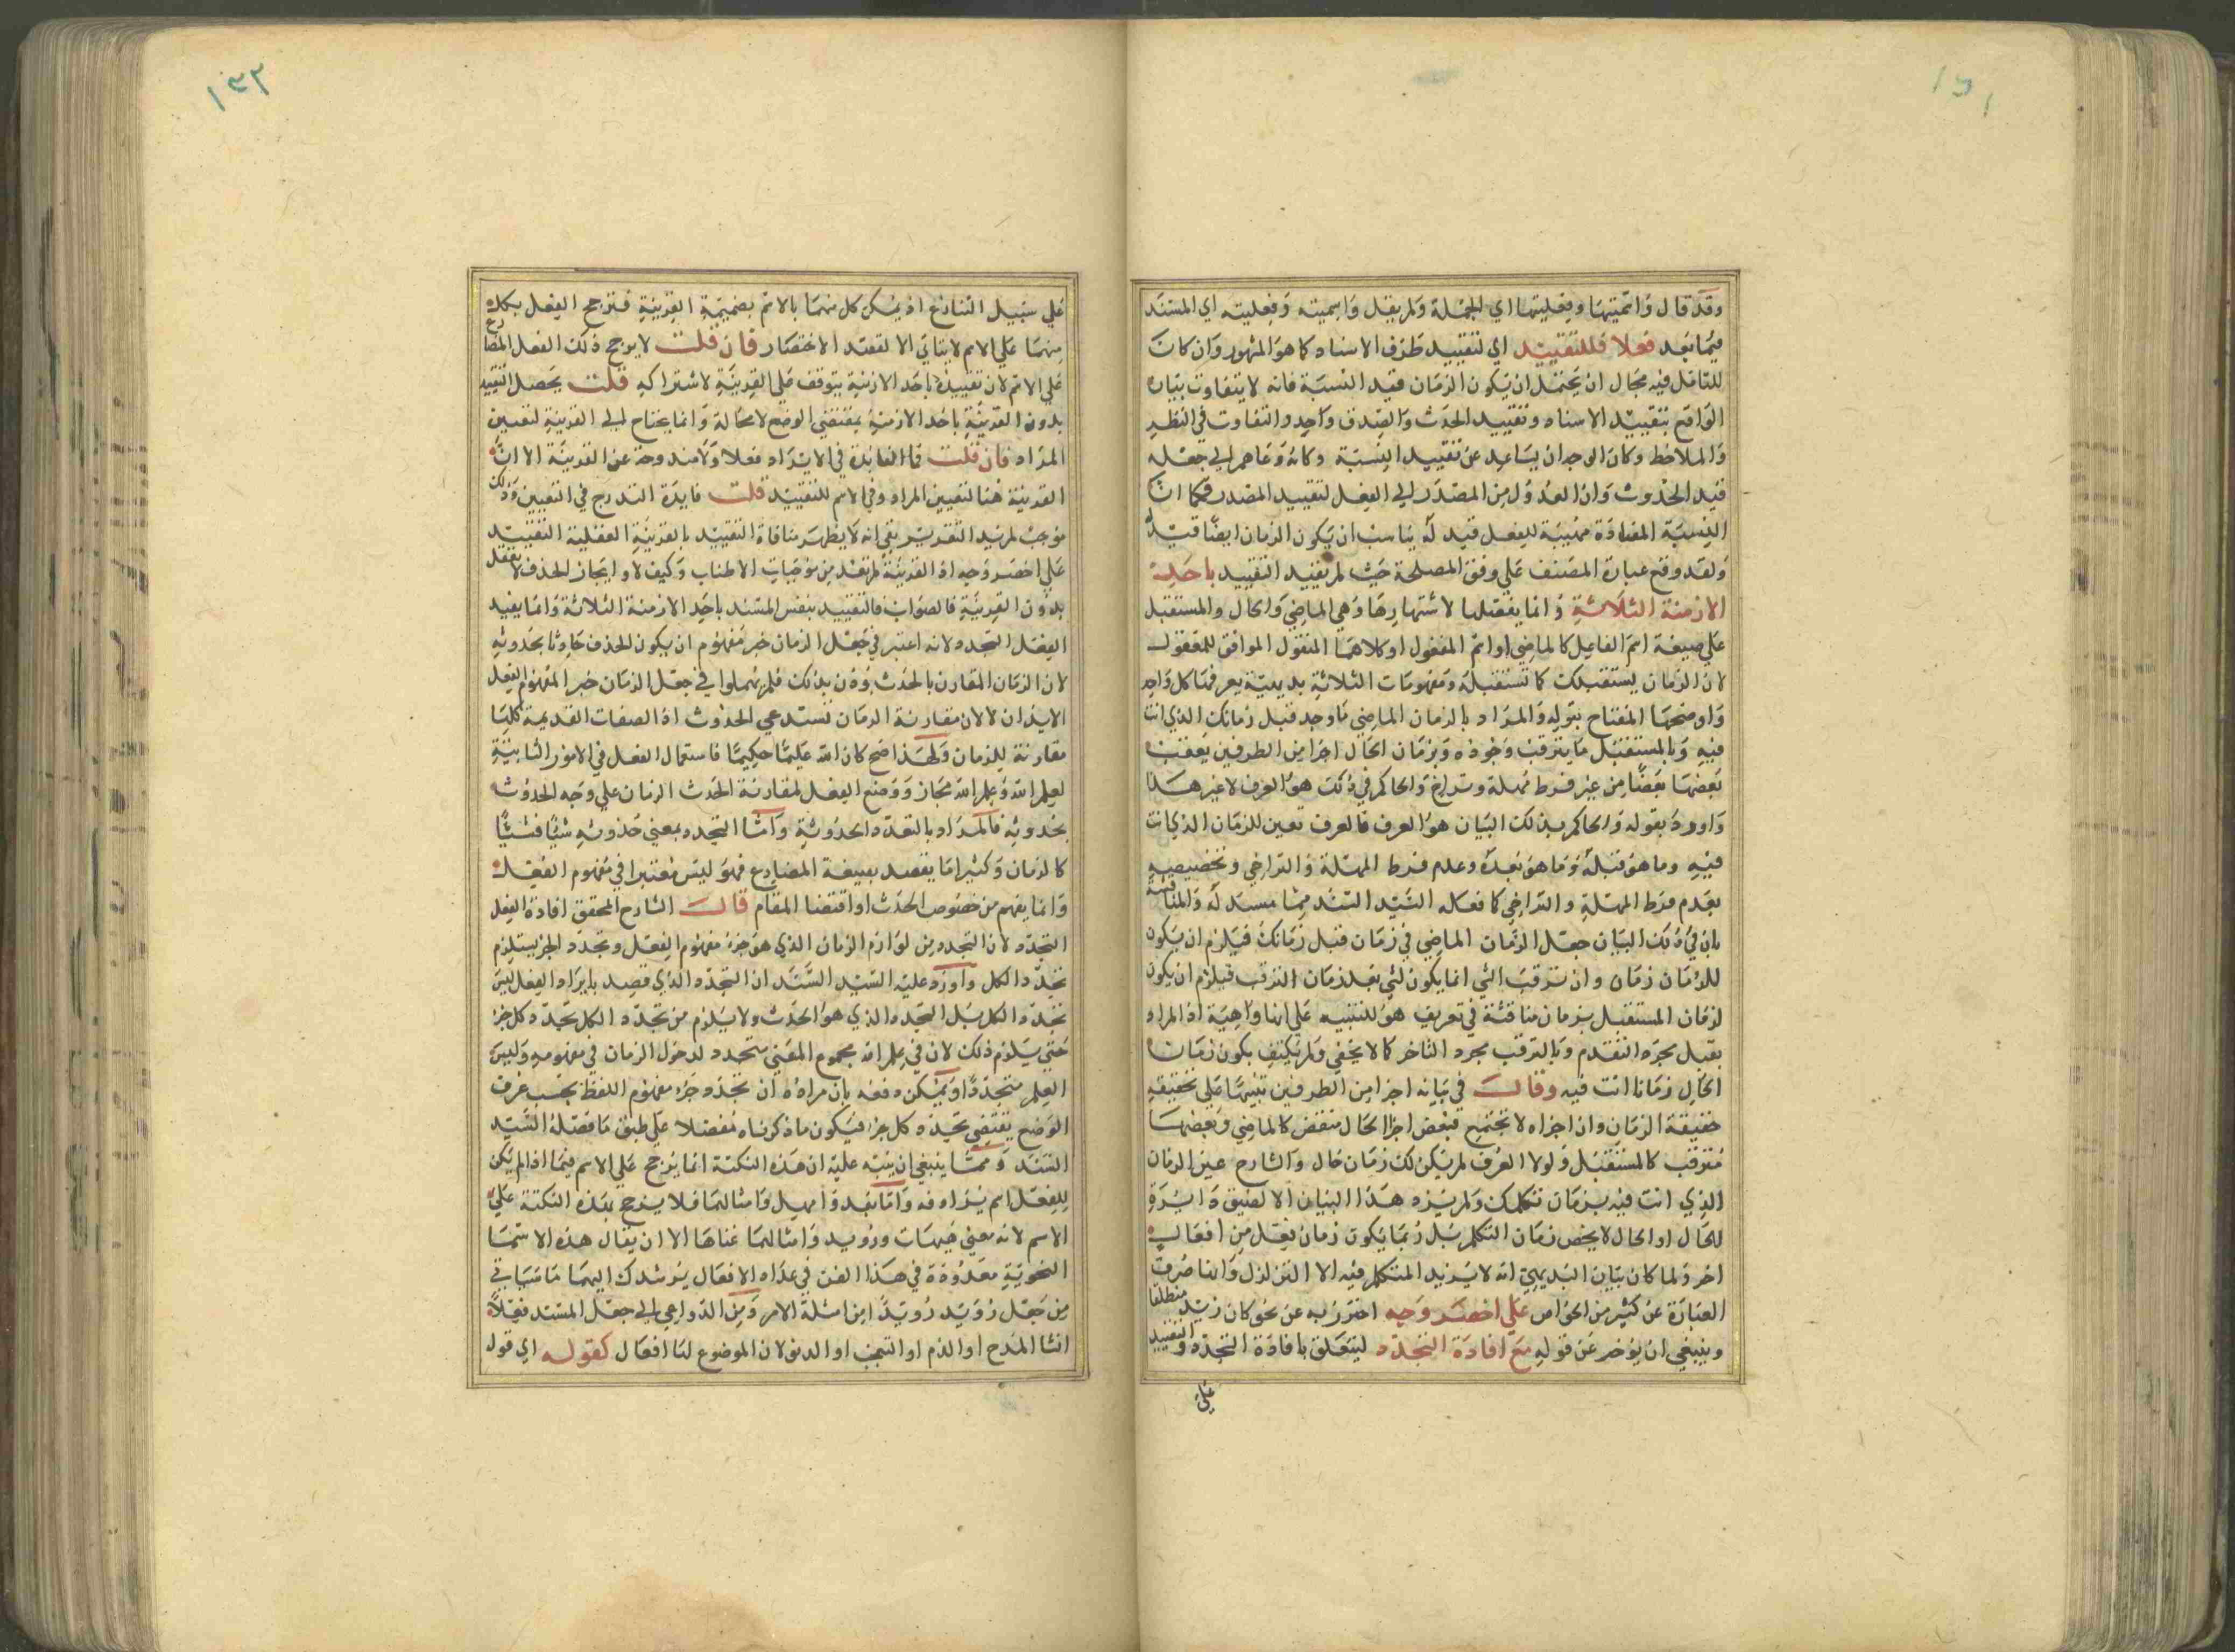 ١٣١
وقد قال واسميتها وفعليتها اي الجملة ولم يقل واسميته وفعليته اي المسند
فيما بعد فعلا فللتقييد اي لتقييد طرف الاسناد كما هو المشهور وان كان
للتامل فيه مجال ان يحتمل ان يكون الزمان قيد النسبة فانه لا يتفاوت بيان
الواقع بتقييد الاسناد وتقييد الحدث والصدق واحد والتفاوت في النظر
والملاحظ وكان الوجدان يساعد عن تقييد النسبة وكانه دعاهم الى جعله
قيد الحدوث وان العدول من المصدر الى الفعل لتقييد المصدر فكما ان
النسبة المفادة مهيئة للفعل قيد له يناسب ان يكون الزمان ايضا قيد له
ولقد وقع عبارة المصنف على وفق المصلحة حيث لم يقيد التقييد باحد
الازمنة الثلاثة وانما يفصلها لاشتهارها وهي الماضي والحال والمستقبل
على صيغة اسم الفاعل كالماضي او اسم المفعول او كلاهما المنقول الموافق للمعقول
لان الزمان يستقبلك كما تستقبله ومفهومات الثلاثة بديهية يعرفها كل واحد
واوضحها المفتاح بقوله والمراد بالزمان الماضي ما وجد قبل زمانك الذي انت
فيه وبالمستقبل ما يترقب وجوده وبزمان الحال اجزا من الطرفين يعقب
بعضها بعضا من غير فرط مهلة وتراخ والحاكم في ذلك هو العرف لا غير هذا
واورد بقوله والحاكم بذلك البيان هو العرف فالعرف تعين للزمان الذي انت
فيه وما هو قبله وما هو بعده وعدم فرط المهلة والتراخي وتخصيصه
بعدم فرط المهلة والتراخي كما فعله السيد السند مما مستدله والمناقشة
بان في ذلك البيان جعل الزمان الماضي في زمان قبل زمانك فيلزم ان يكون
للزمان زمان وان ترقب الشي انما يكون لشي بعد زمان الترقب فيلزم ان يكون
لزمان المستقبل بزمان مناقشة في تعريف هو للتنبيه على انها واهية اذ المراد
بقبل مجرد التقدم وبالترقب مجرد التاخر كما لا يخفى ولم يكتف بكون زمان
الحال زمانا انت فيه وقال في بيانه اجزا من الطرفين تنبيها على تحقيقه
حقيقة الزمان وان اجزاه لا تجتمع فبعض اجزا الحال منقض كالماضي وبعضها
مترقب كالمستقبل ولولا العرف لم يكن لك زمان حال والشارح عين الزمان
الذي انت فيه بزمان تكلمك ولم يزد هذا البيان الا لضيق دايرة
للحال او الحال لا يخص زمان التكلم بل ربما يكون زمان فعل من افعال
اخر ولما كان بيان البديهي انه لا يزيد المتكلم فيه الا التزلزل واننا صرف
العبارة عن كثير من الخواص على اخصر وجه احترز به عن نحو كان زيد منطلقا
وينبغي ان يؤخر عن قوله مع افادة التجدد ليتعلق بافادة التجدد والتقييد
على
١٣٢
على سبيل التنازع اذ يمكن كل منهما بالاسم بضميمة القرينة فترجح الفعل بكل
منهما على الاسم لا يتاتى الا لقصد الاختصار فان قلت لا يرجح ذلك الفعل المضارع
على الاسم لان تقييده باحد الازمنة يتوقف على القرينة لاشتراكه قلت يحصل التقييد
بدون القرينة باحد الازمنة بمقتضى الوضع لا محالة وانما يحتاج الى القرينة لتعيين
المراد فان قلت فما الفائدة في الايراد فعلا ولا مندوحة عن القرينة الا ان
القرينة هنا لتعيين المراد وفي الاسم للتقييد قلت فايدة التدرج في التعيين وذلك
موجب لمزيد التقرير بقي انه لا يظهر منافاة التقييد بالقرينة العقلية التقييد
على اخصر وجه اذ القرينة لم تعد من موجبات الاطناب وكيف لا وايجاز الحذف لا يعقل
بدون القرينة فالصواب فالتقييد بنفس المسند باحد الازمنة الثلاثة وانما يفيد
الفعل التجدد لانه اعتبر في جعل الزمان جزء مفهوم ان يكون الحذف حادثا بحدوثه
لان الزمان المقارن بالحدث يؤذن بذلك فلم يهملوا في جعل الزمان جزء المفهوم الفعل
الايذان لا لان مقارنة الزمان تستدعي الحدوث اذ الصفات القديمة كلها
مقارنة للزمان ولهذا صح كان الله عليما حكيما فاستعمال الفعل في الامور الثابتة
لعلم الله وعلم الله مجاز ووضع الفعل لمقارنة الحدث الزمان على وجه الحدوث
بحدوثه فالمراد بالتعدد الحدوثة واما التجدد بمعنى حدوثه شيئا فشيئا
كالزمان وكثيرا ما يقصد بصيغة المضارع فهو ليس معتبرا في مفهوم الفعل
وانما يفهم من خصوص الحدث او اقتضا المقام قال الشارح المحقق افادة الفعل
التجدد لان التجدد من لوازم الزمان الذي هو جزء مفهوم الفعل وتجدد الجزء يستلزم
تجدد الكل واورد عليه السيد السند ان التجدد الذي قصد بايراد الفعل ليس
تجدد الكل بل التجدد الذي هو الحدث ولا يلزم من تجدد الكل تجدد كل جزء
حتى يلزم ذلك لان في علم الله مجموع المعنى متجدد لدخول الزمان في مفهومه وليس
العلم متجددا ويمكن دفعه بان مراده ان تجدد جزء مفهوم اللفظ بحسب عرف
الوضع يقتضي تجدد كل جزء فيكون ما ذكرناه مفصلا على طبق ما فصله السيد
السند ومما ينبغي ان ينبه عليه ان هذه النكتة انما يرجح على الاسم فيما اذا لم يكن
للفعل اسم يرادفه واما بعد وامهل وامثالهما فلا يرجح بهذه النكتة على
الاسم لانه معنى هيهات ورويد وامثالهما غناها الا ان يقال هذه الاسما
النحوية معدودة في هذا الفن في عداد الافعال يرشدك اليهما ما سياتي
من جعل رويد رويدا من امثلة الامر ومن الدواعي الى جعل المسند فعلا
انشا المدح او الذم او التعجب او الدنو لان الموضوع لها افعال كقوله اي قول